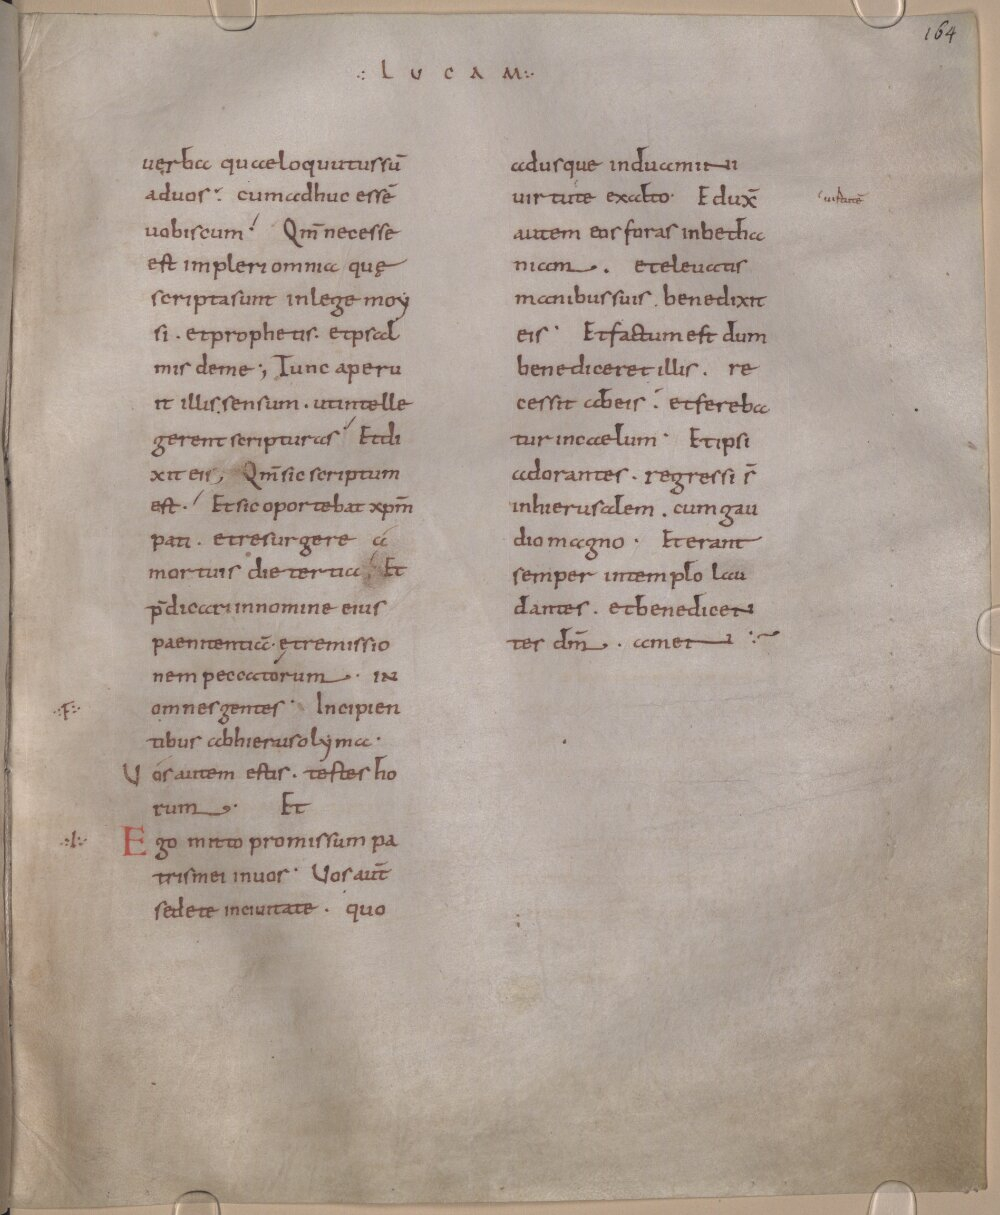 164
.: LUCAM :.
uęrba quaeloquutussū
aduos. cumadhuc essē
uobiscum. Qm̄necesse
est impleriomnia quę
scriptasunt inlege moy
si. etprophetis. etpsal
mis deme; Tunc aperu
it illissensum. utintelle
gerent scripturas. Etdi
xit eis; Qm̄sic scriptum
est. Etsic oportebat xpm̄
pati. etresurgere a
mortuis die tertia; Et
p̄dicari innomine eius
paenitentiā. etremissio
nem peccatorum. IN
.F. omnes gentes. Incipien
tibus abhierusolyma.
Uosautem estis. testes ho
rum. Et
.I. Ego mitto promissum pa
trismei inuos. Uosaut̄
sedete inciuitate. quo
adusque induamini
uirtute exalto. Edux̄
uirtutē
autem eos foras inbetha
niam. eteleuatis
manibussuis. benedixit
eis. Etfactumest dum
benediceret illis. re
cessit abeis. etfereba
tur incaelum. Etipsi
adorantes. regressi s̄
inhierusalem. cumgau
diomagno. Eterant
semper intemplo lau
dantes. etbenedicen
tes dm̄. amen :~